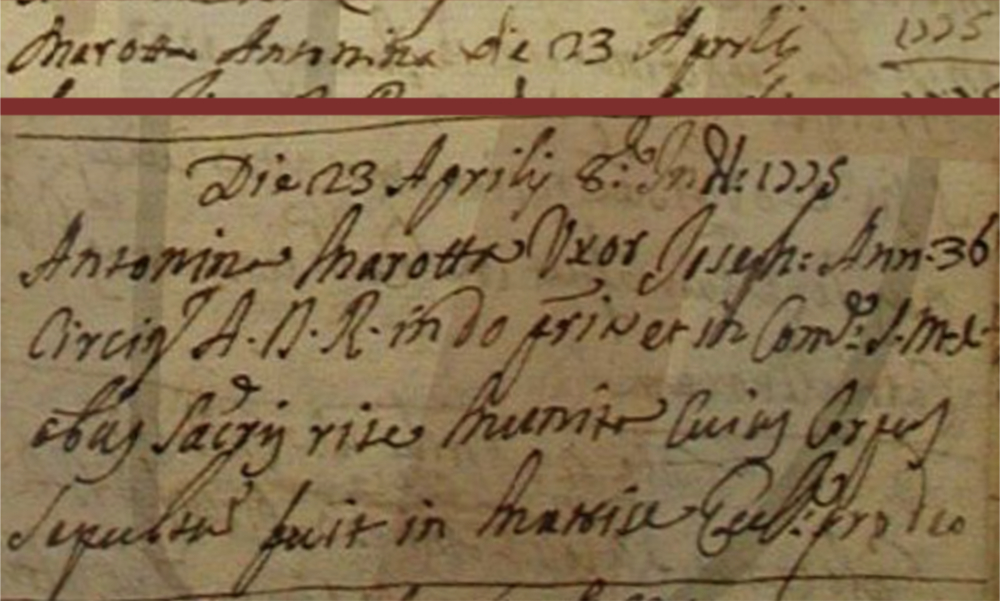 Marotta Antonina die 23 Aprilis 1775
Die 23 Aprilis 8.ª Ind: 1775
Antonina Marotta Uxor Joseph: Ann: 36
Circiter A. D. R. in Do priae et in Com.e S. M. E.
obus Sacris rite munita Cuius Corpus
Sepultū fuit in Matrice Eccl: